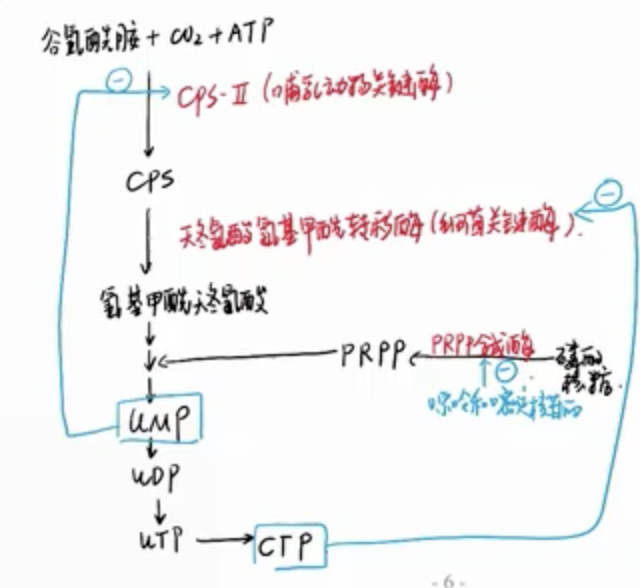 谷氨酰胺 + CO₂ + ATP
⊖
CPS-Ⅱ (哺乳动物关键酶)
CPS
⊖
天冬氨酸氨基甲酰转移酶 (细菌关键酶).
氨基甲酰天冬氨酸
PRPP
PRPP合成酶
磷酸
核糖
⊖
嘌呤和嘧啶核苷酸
UMP
UDP
UTP
CTP
- 6 -